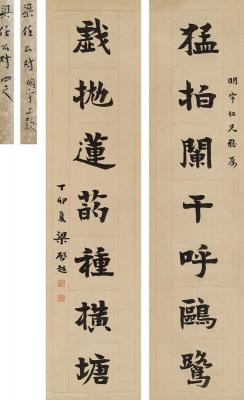 明宇仁兄雅屬
猛拍闌干呼鷗鷺
戲拋蓮菂種橫塘
丁卯夏 梁啓超
梁任公對 明宇上款
梁任公對 四尺